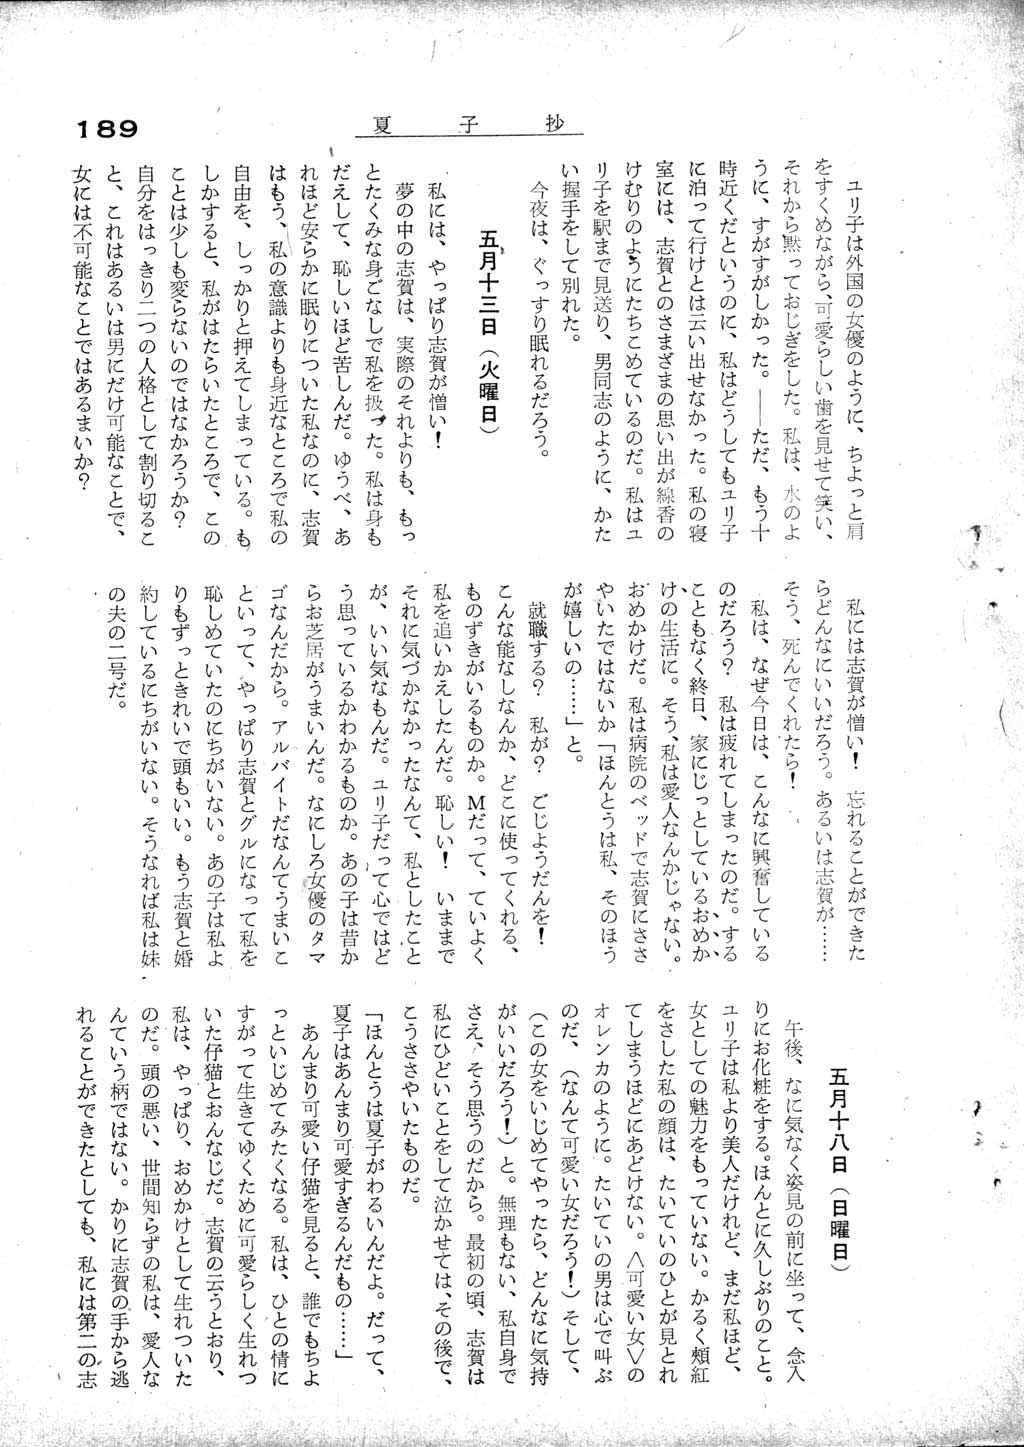 189
夏子抄
ユリ子は外国の女優のように、ちよっと肩
をすくめながら、可愛らしい歯を見せて笑い、
それから黙っておじぎをした。私は、水のよ
うに、すがすがしかった。――ただ、もう十
時近くだというのに、私はどうしてもユリ子
に泊って行けとは云い出せなかった。私の寝
室には、志賀とのさまざまの思い出が線香の
けむりのようにたちこめているのだ。私はユ
リ子を駅まで見送り、男同志のように、かた
い握手をして別れた。
今夜は、ぐっすり眠れるだろう。
五月十三日（火曜日）
私には、やっぱり志賀が憎い！
夢の中の志賀は、実際のそれよりも、もっ
とたくみな身ごなしで私を扱った。私は身も
だえして、恥しいほど苦しんだ。ゆうべ、あ
れほど安らかに眠りについた私なのに、志賀
はもう、私の意識よりも身近なところで私の
自由を、しっかりと押えてしまっている。も
しかすると、私がはたらいたところで、この
ことは少しも変らないのではなかろうか？
自分をはっきり二つの人格として割り切るこ
と、これはあるいは男にだけ可能なことで、
女には不可能なことではあるまいか？
私には志賀が憎い！　忘れることができた
らどんなにいいだろう。あるいは志賀が……
そう、死んでくれたら！
私は、なぜ今日は、こんなに興奮している
のだろう？　私は疲れてしまったのだ。する
こともなく終日、家にじっとしているおめか
けの生活に。そう、私は愛人なんかじゃない。
おめかけだ。私は病院のベッドで志賀にささ
やいたではないか「ほんとうは私、そのほう
が嬉しいの……」と。
就職する？　私が？　ごじようだんを！
こんな能なしなんか、どこに使ってくれる、
ものずきがいるものか。Mだって、ていよく
私を追いかえしたんだ。恥しい！　いままで
それに気づかなかったなんて、私としたこと
が、いい気なもんだ。ユリ子だって心ではど
う思っているかわかるものか。あの子は昔か
らお芝居がうまいんだ。なにしろ女優のタマ
ゴなんだから。アルバイトだなんてうまいこ
といって、やっぱり志賀とグルになって私を
恥しめていたのにちがいない。あの子は私よ
りもずっときれいで頭もいい。もう志賀と婚
約しているにちがいない。そうなれば私は妹
の夫の二号だ。
五月十八日（日曜日）
午後、なに気なく姿見の前に坐って、念入
りにお化粧をする。ほんとに久しぶりのこと。
ユリ子は私より美人だけれど、まだ私ほど、
女としての魅力をもっていない。かるく頬紅
をさした私の顔は、たいていのひとが見とれ
てしまうほどにあどけない。〈可愛い女〉の
オレンカのように。たいていの男は心で叫ぶ
のだ、（なんて可愛い女だろう！）そして、
（この女をいじめてやったら、どんなに気持
がいいだろう！）と。無理もない、私自身で
さえ、そう思うのだから。最初の頃、志賀は
私にひどいことをして泣かせては、その後で、
こうささやいたものだ。
「ほんとうは夏子がわるいんだよ。だって、
夏子はあんまり可愛すぎるんだもの……」
あんまり可愛い仔猫を見ると、誰でもちよ
っといじめてみたくなる。私は、ひとの情に
すがって生きてゆくために可愛らしく生れつ
いた仔猫とおんなじだ。志賀の云うとおり、
私は、やっぱり、おめかけとして生れついた
のだ。頭の悪い、世間知らずの私は、愛人な
んていう柄ではない。かりに志賀の手から逃
れることができたとしても、私には第二の志